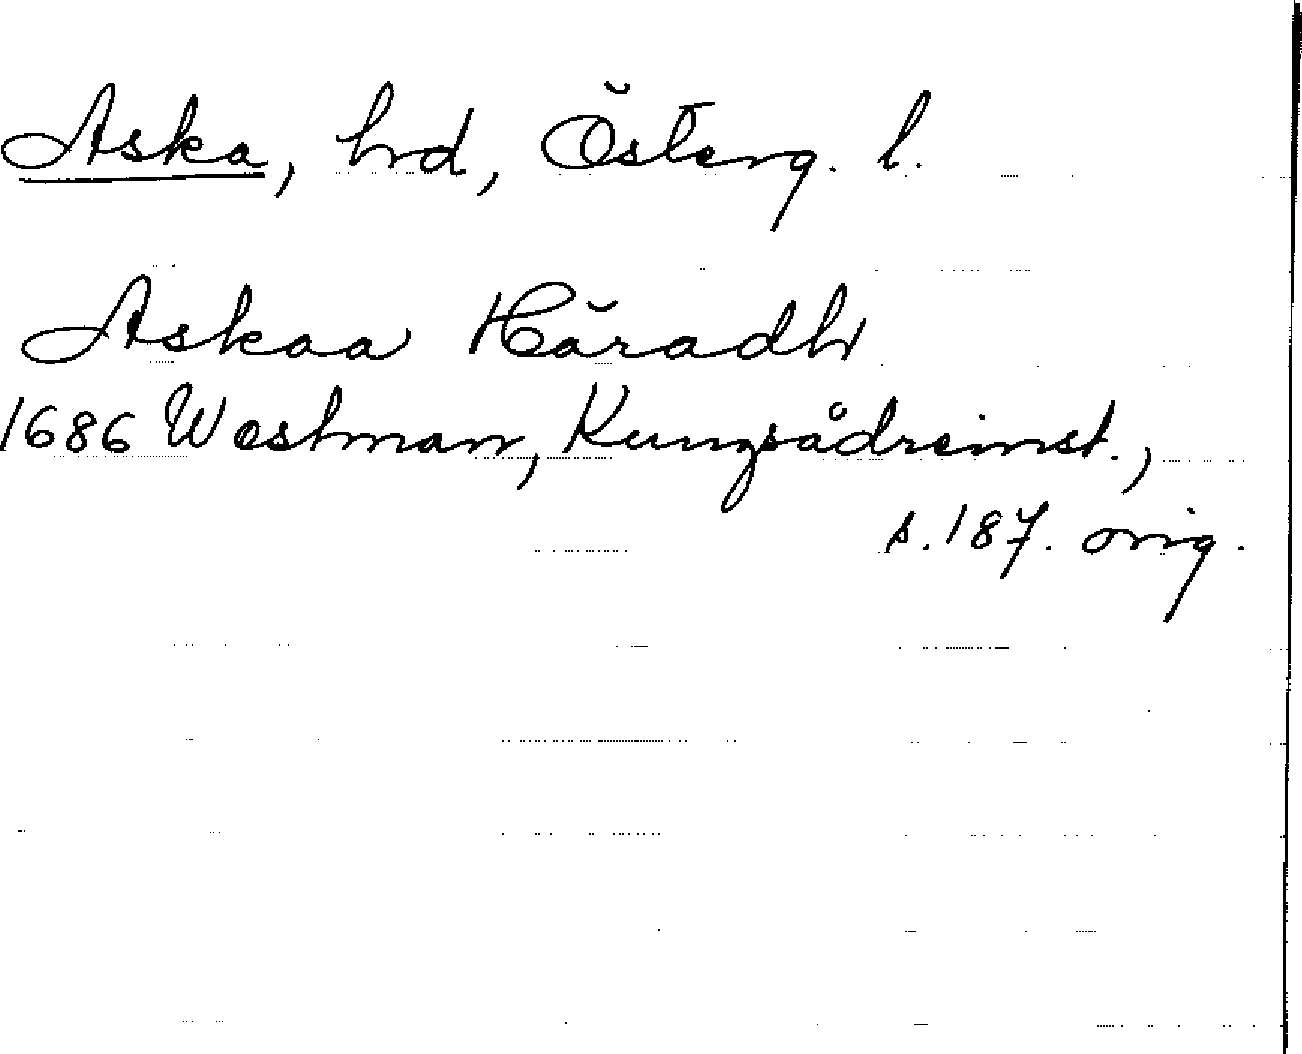 Aska, hrd, Österg. l.
Askaa Häradh
1686 Westman, Kungsådreinst.,
s. 187. orig.